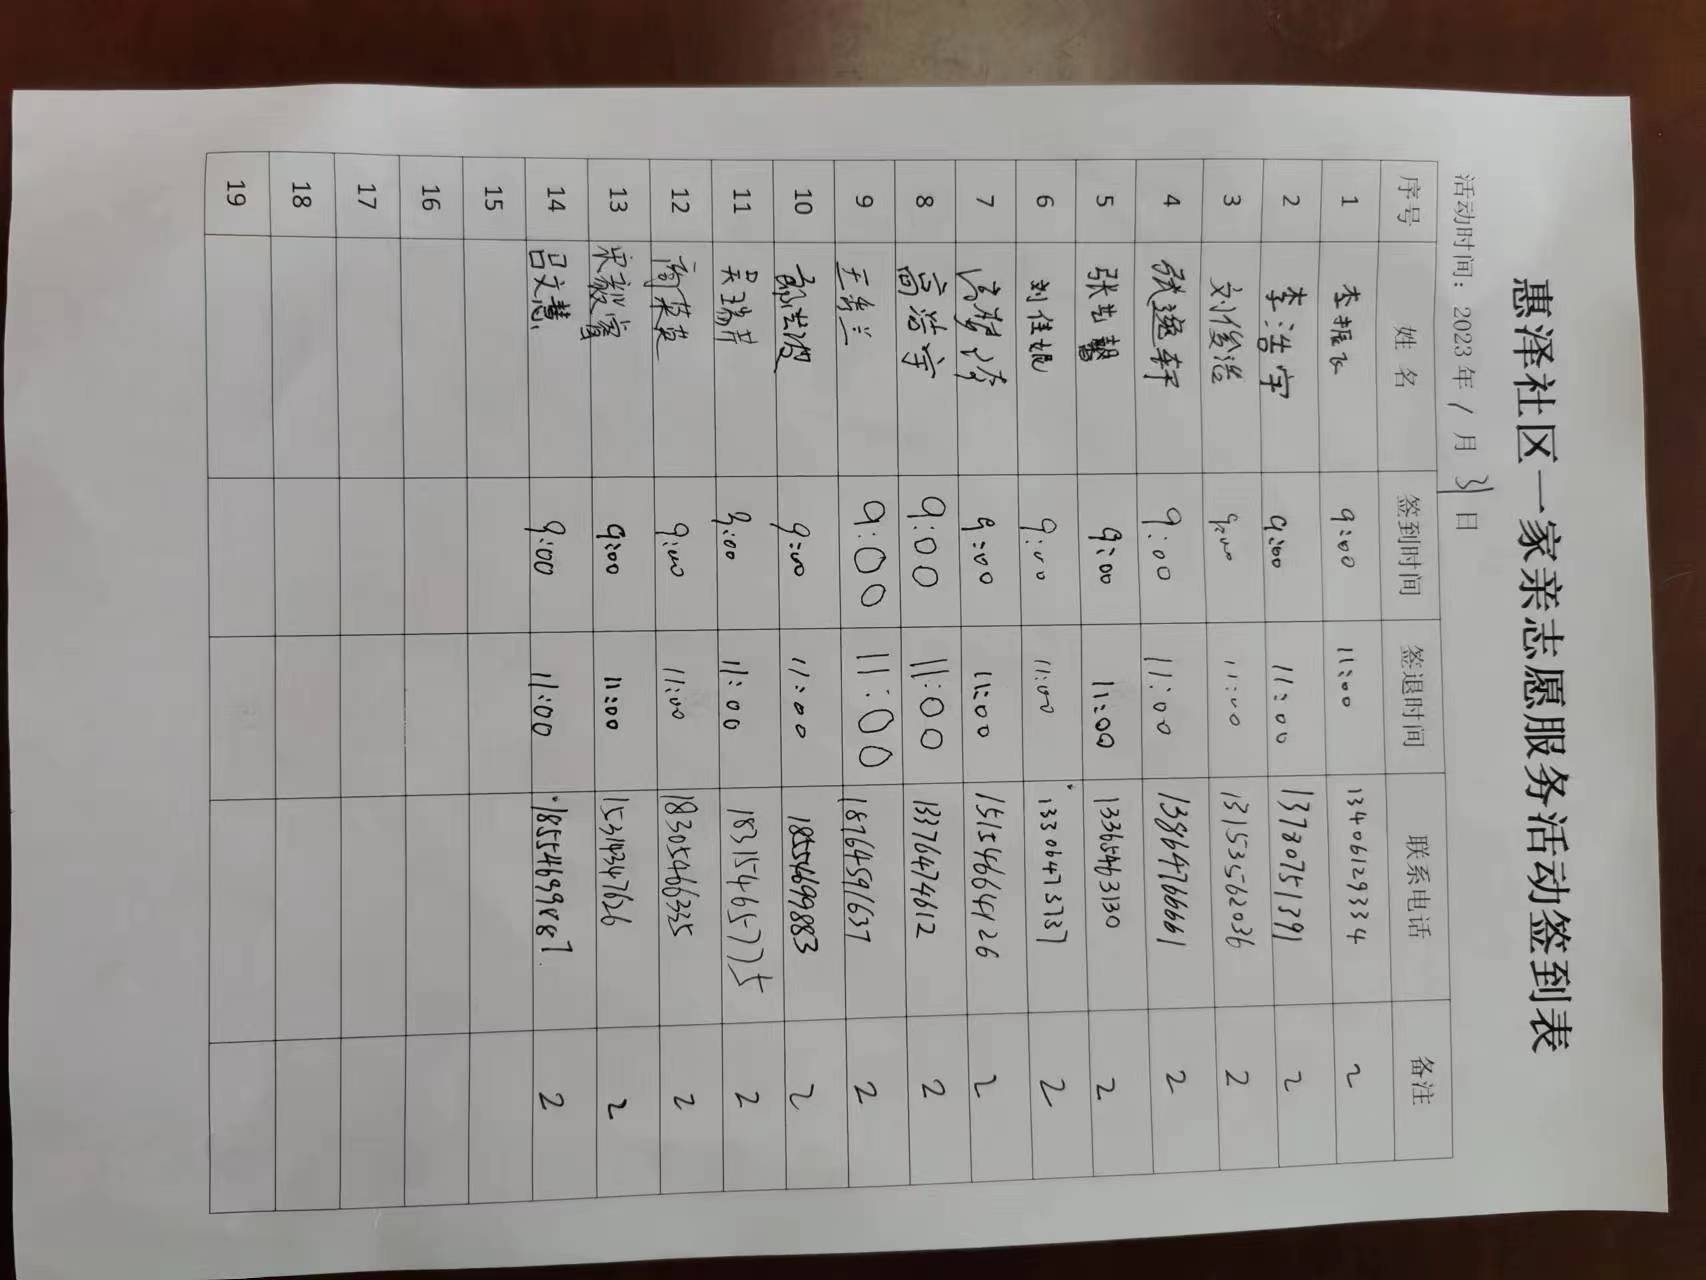 惠泽社区一家亲志愿服务活动签到表
活动时间：2023年1月31日
序号 姓名 签到时间 签退时间 联系电话 备注
1 李振飞 9:00 11:00 13406129334 2
2 李浩宇 9:00 11:00 13730751391 2
3 刘俊浩 9:00 11:00 13153562036 2
4 张逸轩 9:00 11:00 13864766661 2
5 张芸馨 9:00 11:00 13365463130 2
6 刘佳妮 9:00 11:00 13306473737 2
7 9:00 11:00 15154664126 2
8 高浩宇 9:00 11:00 13376474612 2
9 王秀兰 9:00 11:00 18764591637 2
10 9:00 11:00 18554699883 2
11 吴瑞芹 9:00 11:00 18315465775 2
12 9:00 11:00 18305466335 2
13 宋毅睿 9:00 11:00 15314347626 2
14 吕文慧 9:00 11:00 18554699887 2
15
16
17
18
19